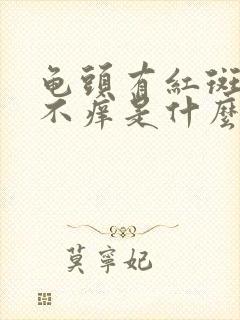 龟頭有紅斑
不痒是什麼
莫寧妃